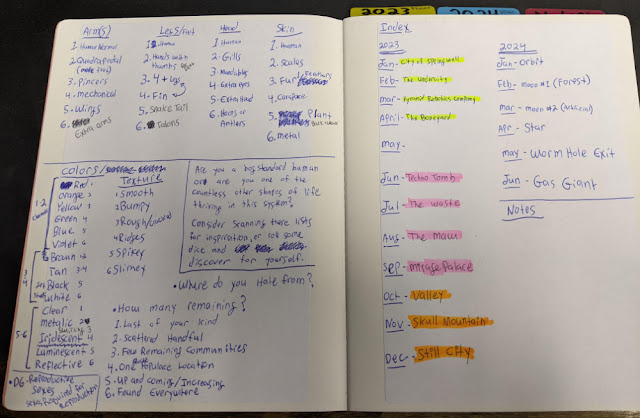 Arm(s)
1. Human Normal
2. Quadrapedal
(more too)
3. Pincers
4. mechanical
5. Wings
6. Extra arms
Legs/Feet
1. Human
2. Hands with
thumbs
3. 4 + Legs
4. Fin
5. Snake Tail
6. Talons
Head
1. Human
2. Gills
3. Mandables
4. Extra eyes
5. Extra Head
6. Horns or
Antlers
Skin
1. Human
2. Scales
3. Fur/Feathers
4. Carapace
5. Plant
6. Metal
Colors/
1-2
Red 1
Orange 2
Yellow 3
Green 4
Blue 5
Violet 6
3-4
Brown
Tan 3-4
Black 5
White 6
5-6
Clear 1
metalic 2
Shifting 3
Iridescent 4
Luminescent 5
Reflective 6
Texture
1 Smooth
2 Bumpy
3 Rough/
4 Ridges
5 Spikey
6 Slimey
Are you a bog standard human
or are you one of the
countless other shapes of life
thriving in this system?
Consider scanning these lists
for inspiration, or roll some
dice and
discover for yourself.
• Where do you Hale from?
• How many remaining?
1. Last of your kind
2. Scattered Handful
3. Few Remaining Communities
4. One Populace Location
5. Up and coming/Increasing
6. Found Everywhere
• D6 - Reproductive
Sexes
Sexes Required for
Reproduction
2023
2024
Index
2023
Jan - City of Springwell
Feb - The Undercity
Mar - Pyramid Robotics Company
April - The Boneyard
may -
Jun - Techno Tomb
Jul - The waste
Aug - The maw
Sep - mirage Palace
Oct - Valley
Nov - Skull Mountain
Dec - Still City
2024
Jan - Orbit
Feb - moon #1 (Forest)
mar - moon #2 (Artificial)
Apr - Star
may - Worm Hole Exit
Jun - Gas Giant
Notes